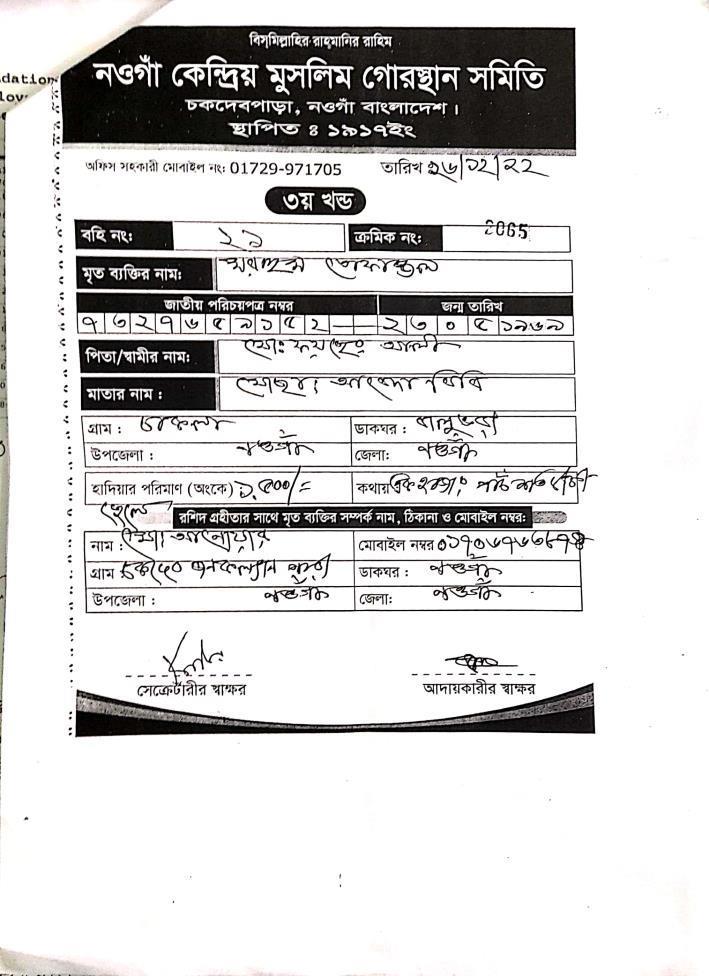 dation
বিস্‌মিল্লাহির রাহ্‌মানির রাহিম
নওগাঁ কেন্দ্রিয় মুসলিম গোরস্থান সমিতি
চকদেবপাড়া, নওগাঁ বাংলাদেশ।
স্থাপিত ঃ ১৯১৭ইং
অফিস সহকারী মোবাইল নং: 01729-971705 তারিখ ২৬/১২/২২
৩য় খন্ড
বহি নং: ২১ ক্রমিক নং: 2065
মৃত ব্যক্তির নাম:
জাতীয় পরিচয়পত্র নম্বর জন্ম তারিখ
২৩ ০৫ ১৯৬৯
পিতা/স্বামীর নাম: মোঃ আলী
মাতার নাম : মোছাঃ বিবি
গ্রাম : চাকলা ডাকঘর : বালুভরা
উপজেলা : নওগাঁ জেলা: নওগাঁ
হাদিয়ার পরিমাণ (অংকে) ১,৫০০/= কথায় এক হাজার পাঁচ শত টাকা
ছেলে
রশিদ গ্রহীতার সাথে মৃত ব্যক্তির সম্পর্ক নাম, ঠিকানা ও মোবাইল নম্বর:
নাম : মোঃ আনোয়ার মোবাইল নম্বর
গ্রাম চকদেব জনকল্যাণ পাড়া ডাকঘর : নওগাঁ
উপজেলা : নওগাঁ জেলা: নওগাঁ
সেক্রেটারীর স্বাক্ষর আদায়কারীর স্বাক্ষর